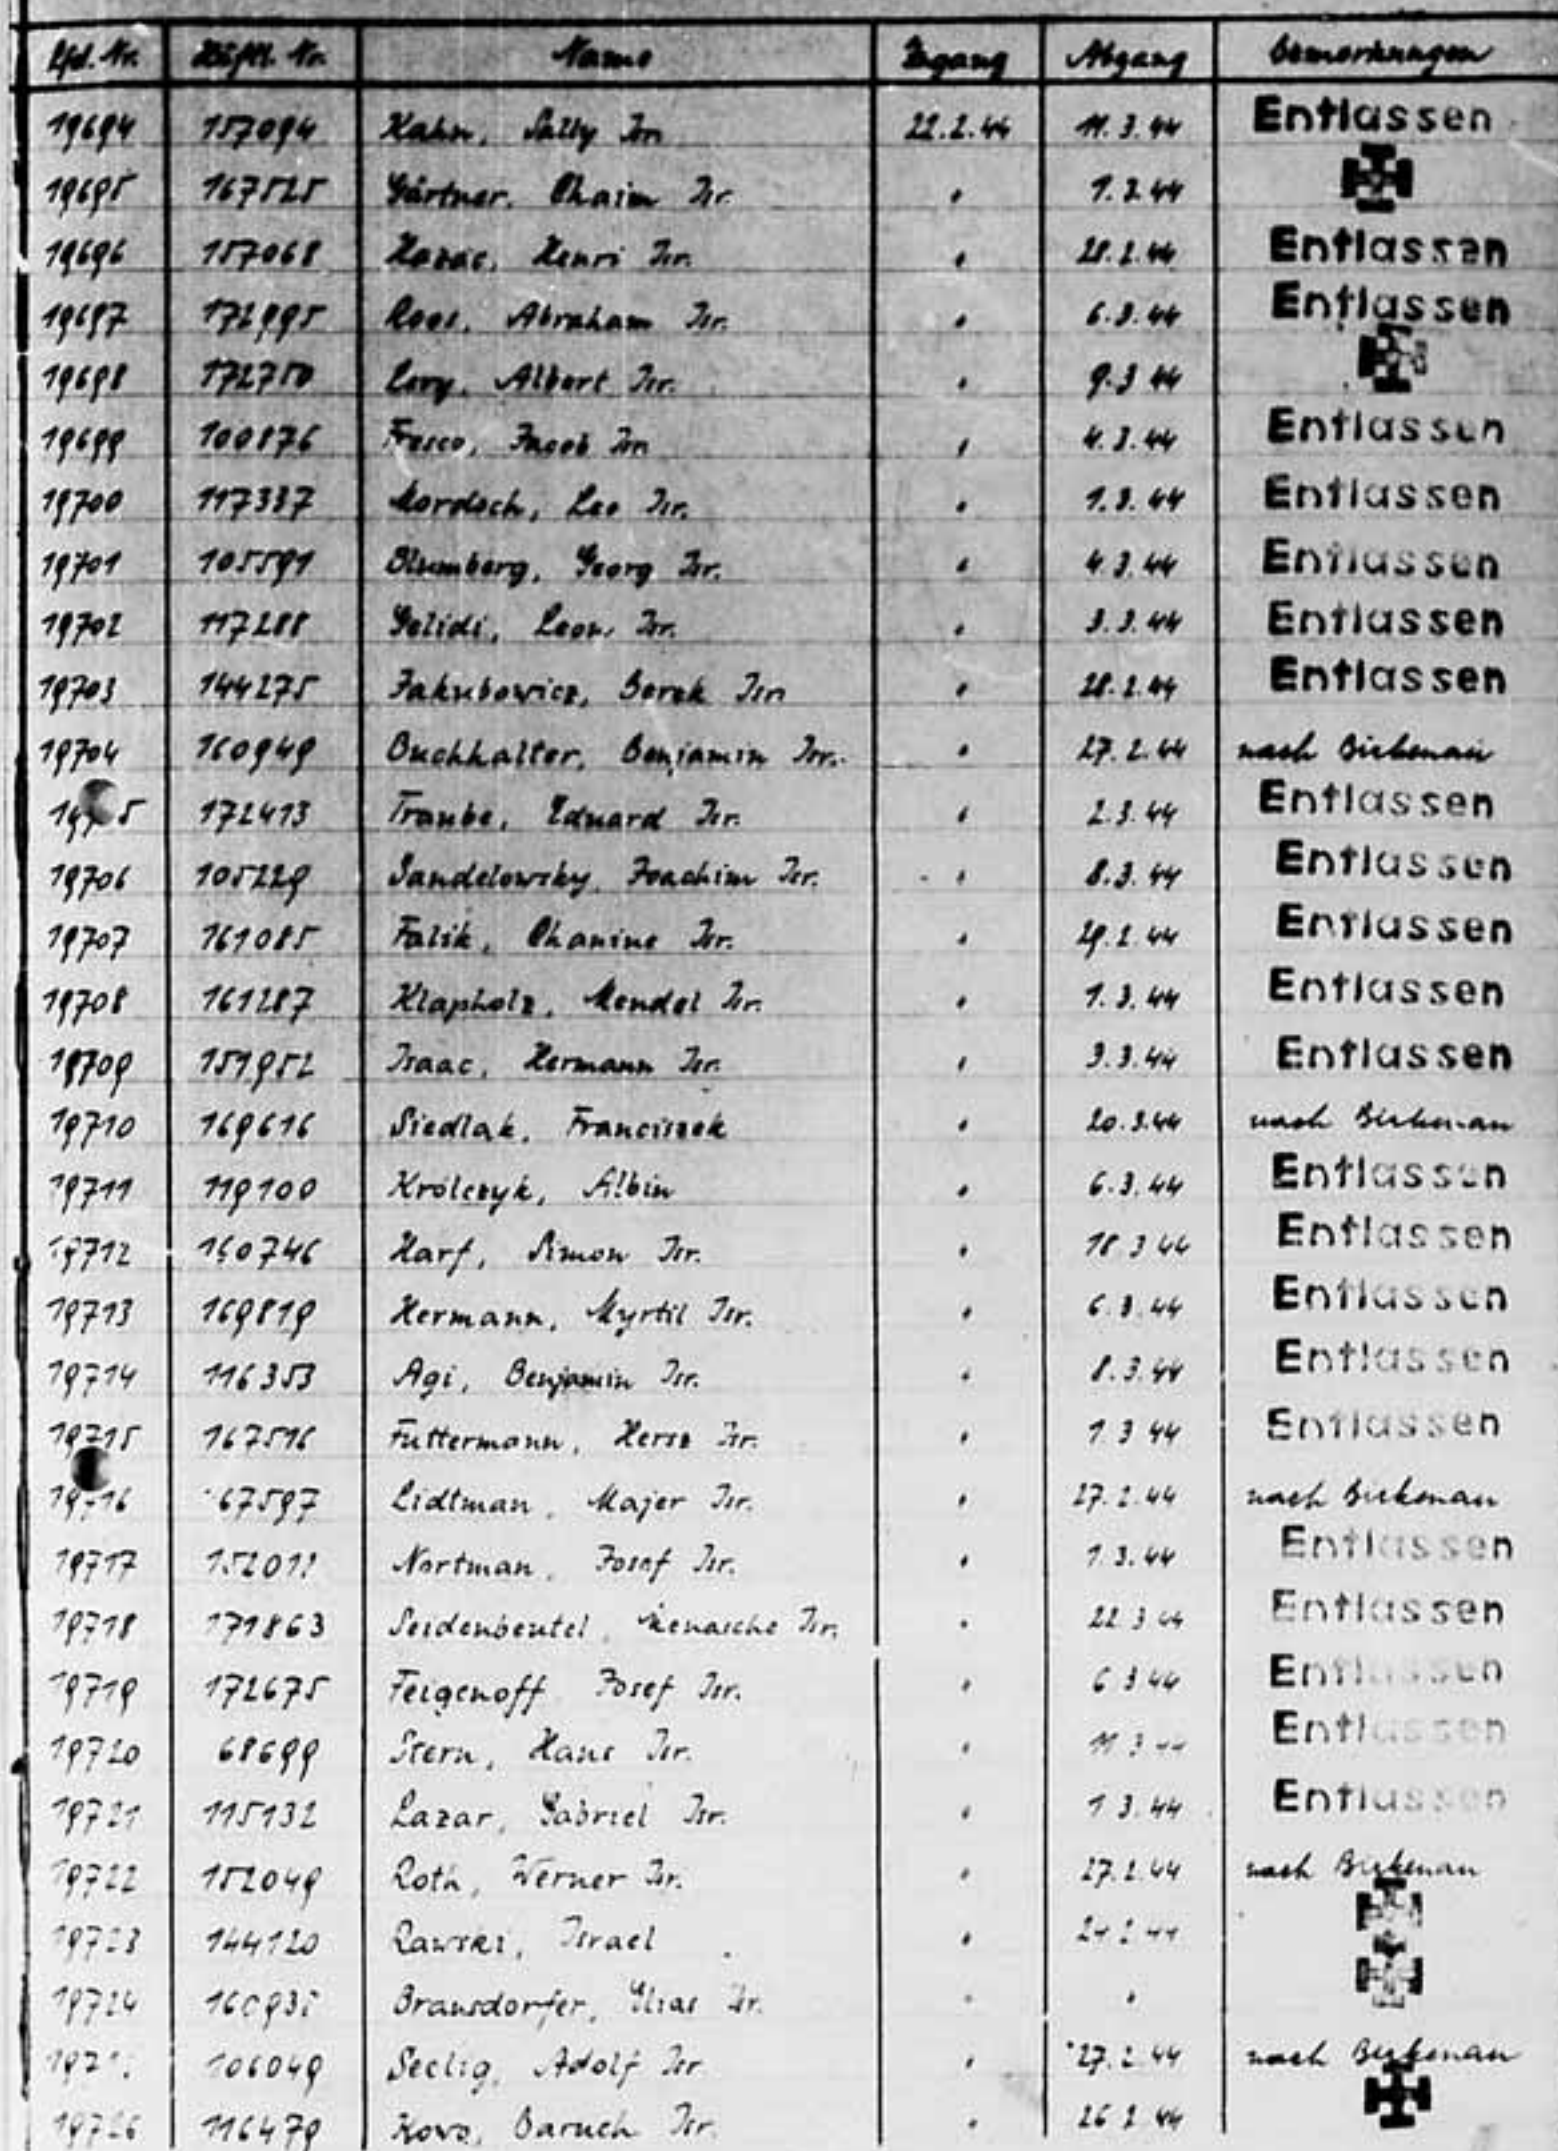 Lfd. Nr. Häftl. Nr. Name Zugang Abgang Bemerkungen
19694 157094 Kahn, Sally Isr. 22.2.44 11.3.44 Entlassen
19695 167525 Gärtner, Chaim Isr. " 1.3.44
19696 157068 Hazac, Henri Isr. " 28.2.44 Entlassen
19697 172995 Roos, Abraham Isr. " 6.3.44 Entlassen
19698 172750 Levy, Albert Isr. " 9.3.44
19699 100876 Fresco, Jacob Isr. " 4.3.44 Entlassen
19700 117337 Mordoch, Leo Isr. " 1.3.44 Entlassen
19701 105591 Blumberg, Georg Isr. " 4.3.44 Entlassen
19702 117288 Gelidi, Leon Isr. " 3.3.44 Entlassen
19703 144275 Jakubowicz, Berek Isr. " 28.2.44 Entlassen
19704 160949 Buchhalter, Benjamin Isr. " 27.2.44 nach Birkenau
172413 Traube, Eduard Isr. " 2.3.44 Entlassen
19706 105229 Sandelowsky, Joachim Isr. " 8.3.44 Entlassen
19707 161085 Falik, Chanine Isr. " 29.2.44 Entlassen
19708 161287 Klapholz, Mendel Isr. " 1.3.44 Entlassen
19709 151952 Isaac, Hermann Isr. " 3.3.44 Entlassen
19710 169616 Siedlak, Franciszek " 20.3.44 nach Birkenau
19711 119100 Królczyk, Albin " 6.3.44 Entlassen
19712 160746 Harf, Simon Isr. " 18.3.44 Entlassen
19713 169819 Hermann, Myrtil Isr. " 6.3.44 Entlassen
19714 116353 Agi, Benjamin Isr. " 8.3.44 Entlassen
19715 167516 Futtermann, Hersz Isr. " 1.3.44 Entlassen
67597 Lidtman, Majer Isr. " 27.2.44 nach Birkenau
19717 Nortman, Josef Isr. " 1.3.44 Entlassen
19718 171863 Seidenbeutel, Menasche Isr. " 22.3.44 Entlassen
19719 172675 Feigenoff Josef Isr. " 6.3.44 Entlassen
19720 68699 Stern, Hans Isr. " 11.3.44 Entlassen
19721 115132 Lazar, Gabriel Isr. " 1.3.44 Entlassen
19722 152049 Roth, Werner Isr. " 27.2.44 nach Birkenau
19723 144120 Rawski, Israel "
19724 160935 Bransdorfer, Elias Isr. " "
106049 Seelig, Adolf Isr. " 27.2.44 nach Birkenau
19726 116479 Kovo, Baruch Isr. " 26.2.44